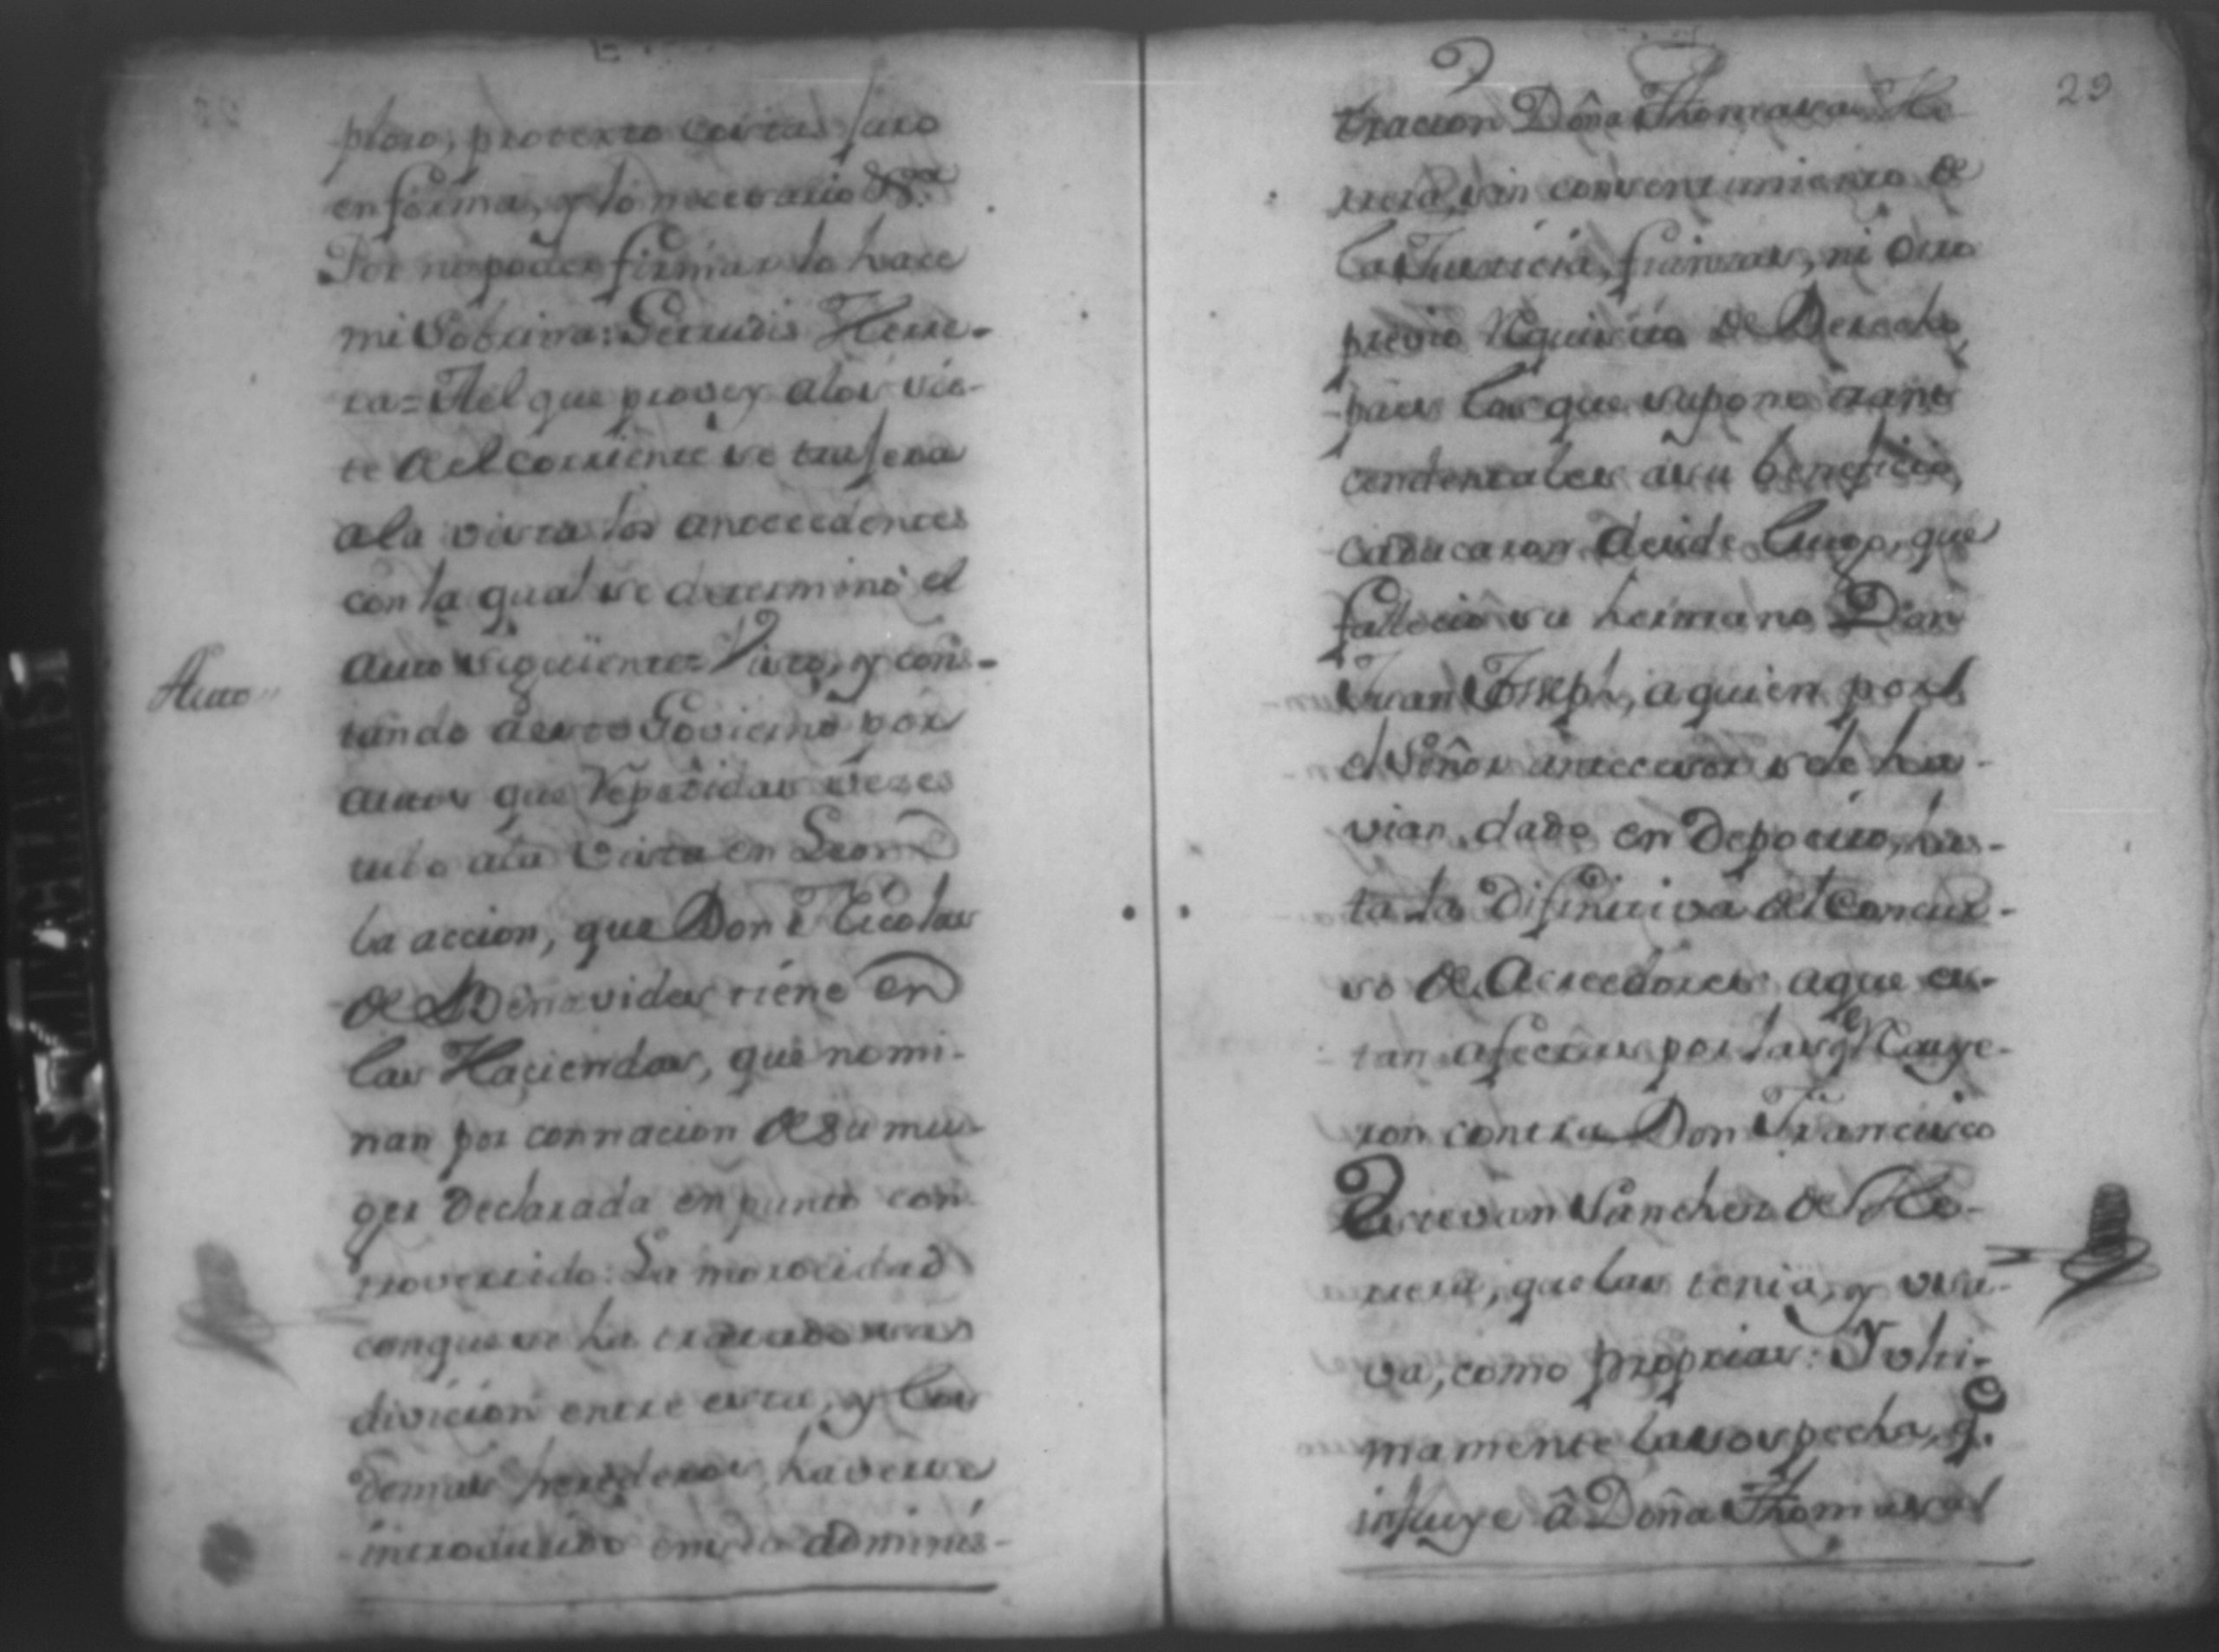 ploro, protexto costas juro
en forma, y lo necesario &ra.
Por no poder firmar lo hace
mi Sobrina: Getrudis Herre-
ra= Al que provey alos vie-
te del corriente se trugera
ala vista los antecedentes
con la qual se determinó el
Auto
auto siguiente= Visto, y cons-
tando a esto Govierno por
autos que repetidas vezes
tubo ala vista en Leon
la accion, que Don Nicolas
de Benavides tiene en
las Haciendas, que nomi-
nan por connacion de su mu-
ger declarada en punto con-
trovertido: La morocidad
conque se ha tratado
divicion entre esta, y los
demas herederos, haverse
introducido en la adminis-
29
tracion Doña Thomasa He
rrera, sin consentimiento de
la Justicia, fianzas, ni otro
previo requisito de Derecho,
pues las que supone trans
cendentales â su beneficio,
caducaron desde luego, que
falleció su hermano Don
Juan Joseph, a quien por
el Señor antecesor se le ha-
vian dado en Depocito, has-
ta la Difinitiva del Concur-
so de Acreedores a que es-
tan afectas por las q.e Caye-
ron contra Don Francisco
Estevan Sanchez de He-
rrera, que las tenia, y usa-
va, como proprias: Y ulti-
mamente la sospecha, q.e
influye â Doña Thomasa